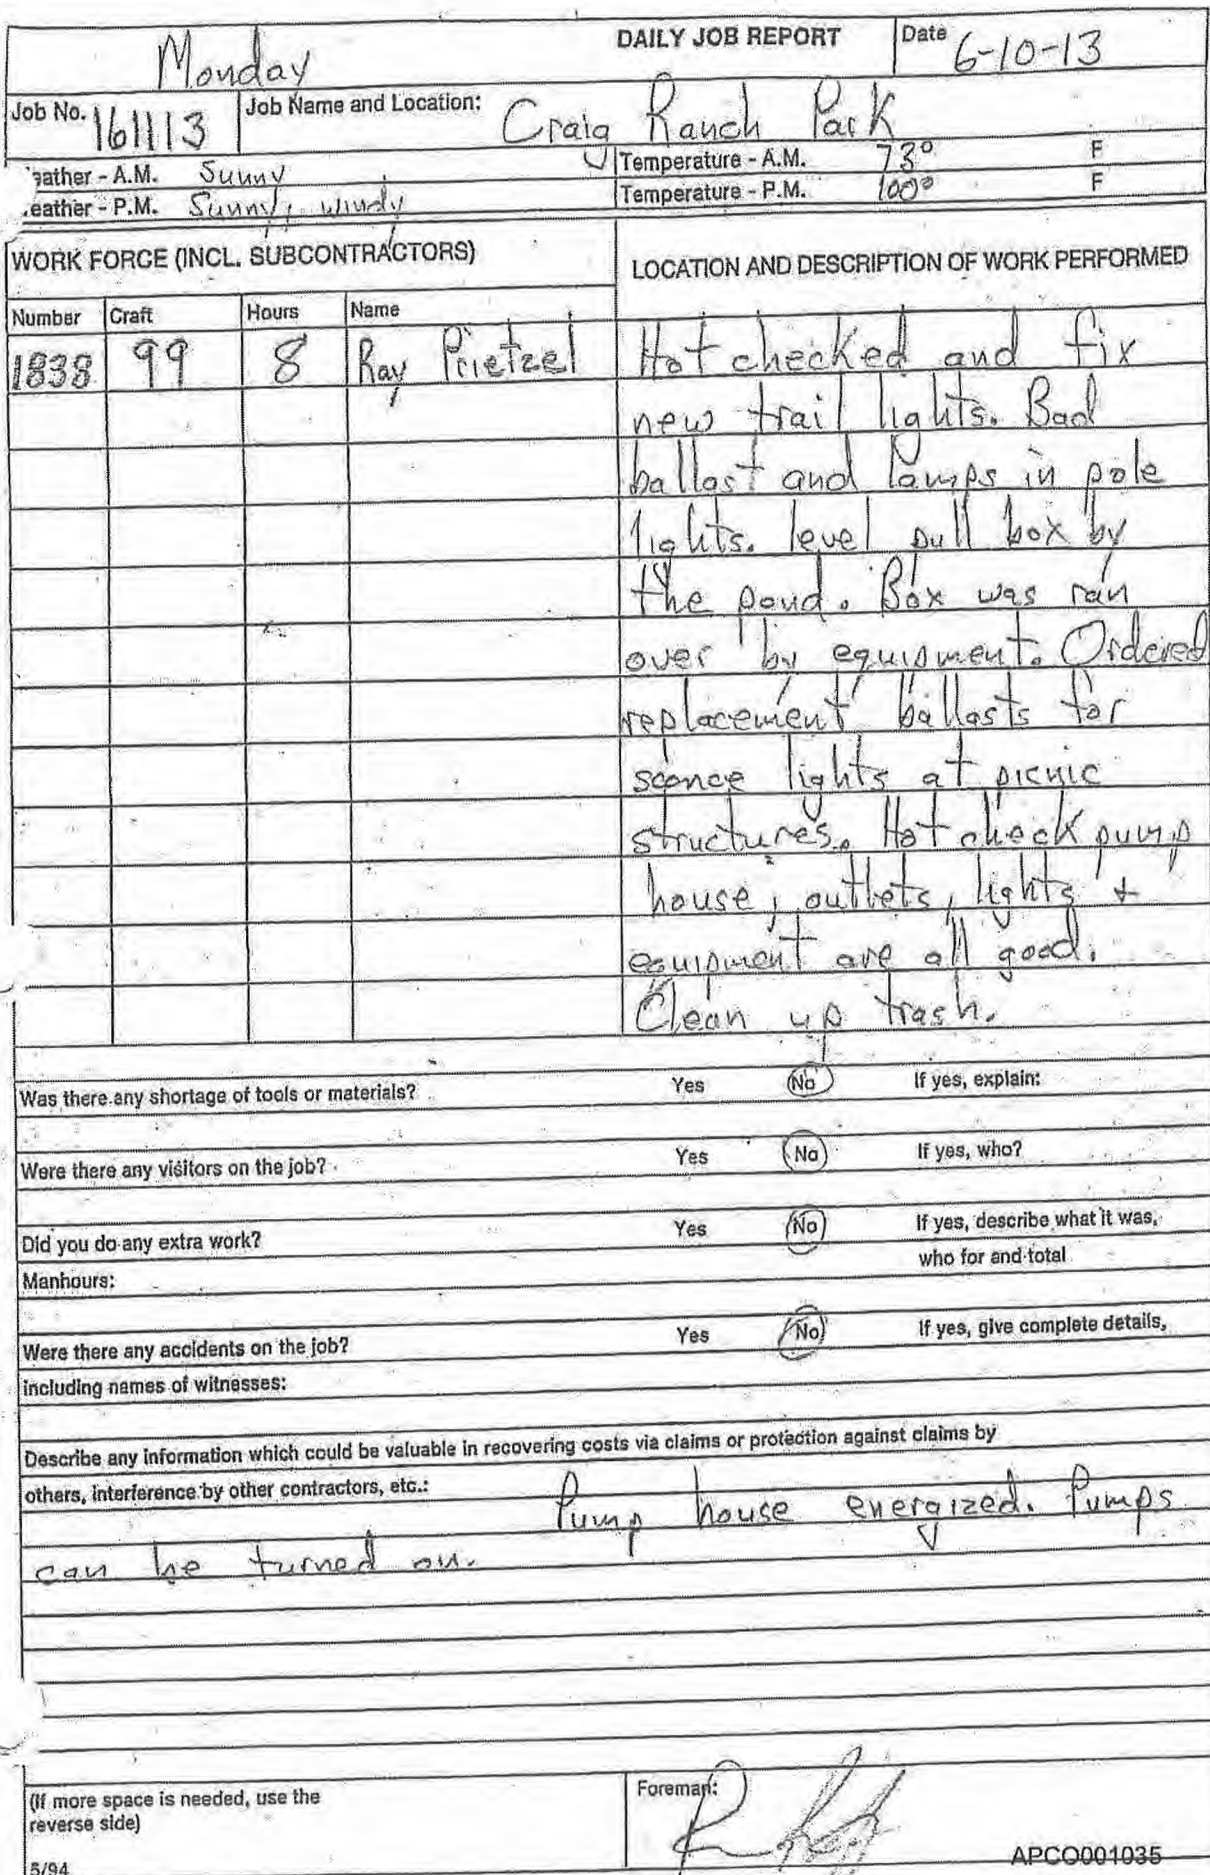 DAILY JOB REPORT
Date 6-10-13
Monday
Job No. 161113
Job Name and Location: Craig Ranch Park
eather - A.M. Sunny
Temperature - A.M. 73° F
eather - P.M. Sunny, windy
Temperature - P.M. 100° F
WORK FORCE (INCL. SUBCONTRACTORS)
LOCATION AND DESCRIPTION OF WORK PERFORMED
Number Craft Hours Name
1838 99 8 Ray Prietzel
Hot checked and fix
new trail lights. Bad
ballast and lamps in pole
lights. level pull box by
the pond. Box was ran
over by equipment. Ordered
replacement ballasts for
sconce lights at picnic
structures. Hot check pump
house, outlets, lights +
equipment are all good.
Clean up trash.
Was there any shortage of tools or materials? Yes No If yes, explain:
Were there any visitors on the job? Yes No If yes, who?
Did you do any extra work? Yes No If yes, describe what it was,
who for and total
Manhours:
Were there any accidents on the job? Yes No If yes, give complete details,
including names of witnesses:
Describe any information which could be valuable in recovering costs via claims or protection against claims by
others, interference by other contractors, etc.: Pump house energized. Pumps
can be turned on.
(If more space is needed, use the
reverse side)
Foreman:
5/94
APCO001035